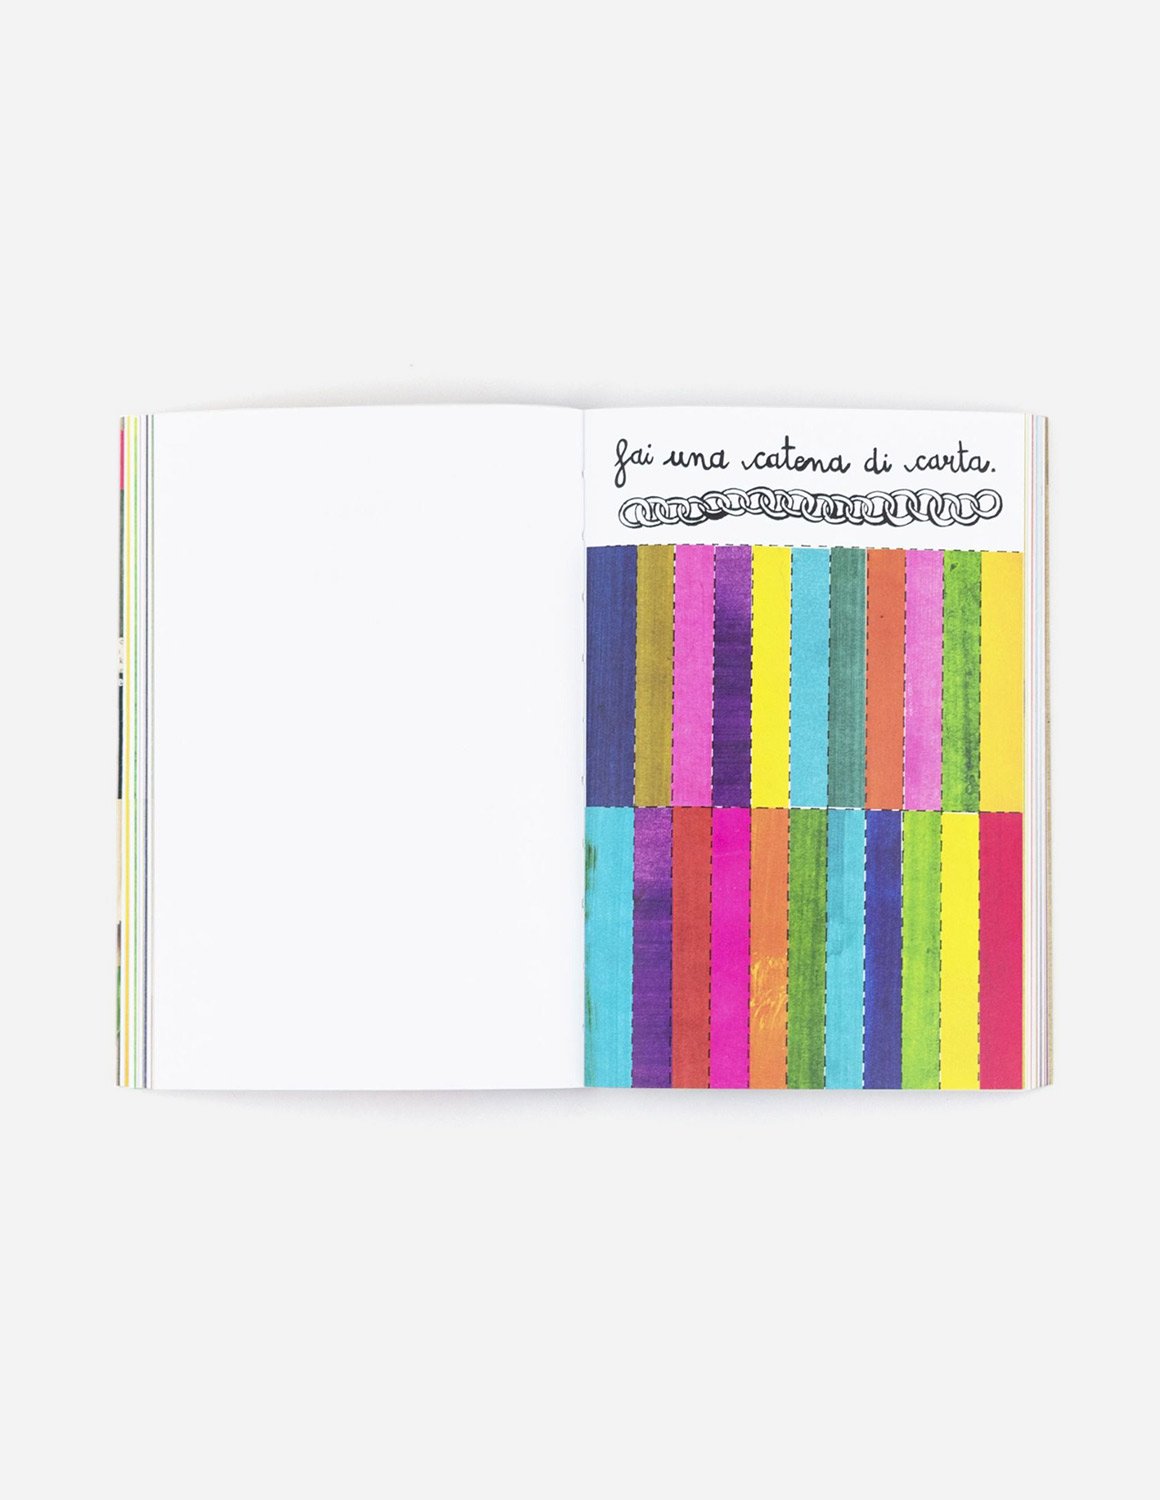 fai una catena di carta.